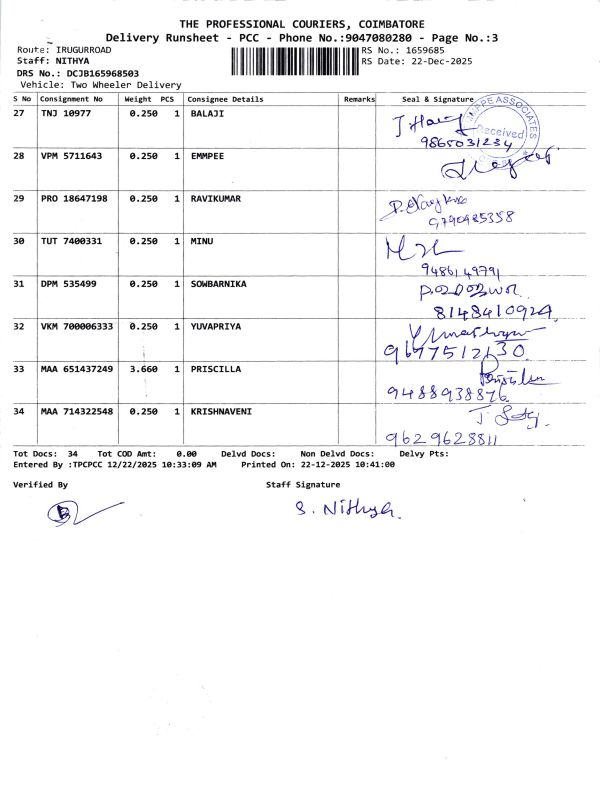 THE PROFESSIONAL COURIERS, COIMBATORE
Delivery Runsheet - PCC - Phone No.:9047080280 - Page No.:3
Route: IRUGURROAD
RS No.: 1659685
Staff: NITHYA
RS Date: 22-Dec-2025
DRS No.: DCJB165968503
Vehicle: Two Wheeler Delivery
S No Consignment No Weight PCS Consignee Details Remarks Seal & Signature
27 TNJ 10977 0.250 1 BALAJI
ASSOCIATES
Received
9865031234
28 VPM 5711643 0.250 1 EMMPEE
29 PRO 18647198 0.250 1 RAVIKUMAR
9790985358
30 TUT 7400331 0.250 1 MINU
9486149791
31 DPM 535499 0.250 1 SOWBARNIKA
8148410924
32 VKM 700006333 0.250 1 YUVAPRIYA
9677512130
33 MAA 651437249 3.660 1 PRISCILLA
9488938876
34 MAA 714322548 0.250 1 KRISHNAVENI
9629628811
Tot Docs: 34 Tot COD Amt: 0.00 Delvd Docs: Non Delvd Docs: Delvy Pts:
Entered By :TPCPCC 12/22/2025 10:33:09 AM Printed On: 22-12-2025 10:41:00
Verified By Staff Signature
S. Nithya.